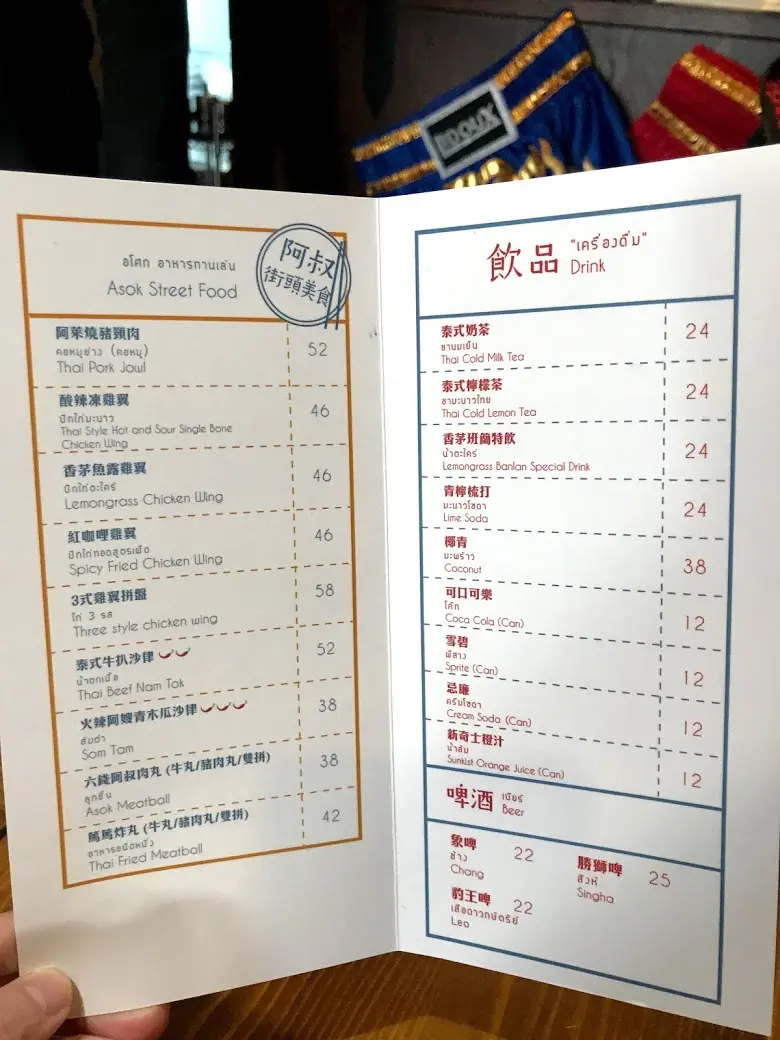 อโศก อาหารทานเล่น
Asok Street Food
阿叔
街頭美食
阿萊燒豬頸肉
คอหมูย่าง (คอหมู)
Thai Pork Jowl
52
酸辣凍雞翼
ปีกไก่มะนาว
Thai Style Hot and Sour Single Bone
Chicken Wing
46
香茅魚露雞翼
ปีกไก่ตะไคร้
Lemongrass Chicken Wing
46
紅咖哩雞翼
ปีกไก่ทอดสูตรเผ็ด
Spicy Fried Chicken Wing
46
3式雞翼拼盤
ไก่ 3 รส
Three style chicken wing
58
泰式牛扒沙律
น้ำตกเนื้อ
Thai Beef Nam Tok
52
火辣阿嫂青木瓜沙律
ส้มตำ
Som Tam
38
六錢阿叔肉丸 (牛丸/豬肉丸/雙拼)
ลูกชิ้น
Asok Meatball
38
篤篤炸丸 (牛丸/豬肉丸/雙拼)
Thai Fried Meatball
42
飲品 "เครื่องดื่ม"
Drink
泰式奶茶
ชานมเย็น
Thai Cold Milk Tea
24
泰式檸檬茶
ชามะนาวไทย
Thai Cold Lemon Tea
24
香茅班蘭特飲
น้ำตะไคร้
Lemongrass Banlan Special Drink
24
青檸梳打
มะนาวโซดา
Lime Soda
24
椰青
มะพร้าว
Coconut
38
可口可樂
โค้ก
Coca Cola (Can)
12
雪碧
Sprite (Can)
12
忌廉
ครีมโซดา
Cream Soda (Can)
12
新奇士橙汁
น้ำส้ม
Sunkist Orange Juice (Can)
12
啤酒 เบียร์
Beer
象啤
ช้าง
Chang
22
勝獅啤
สิงห์
Singha
25
豹王啤
Leo
22